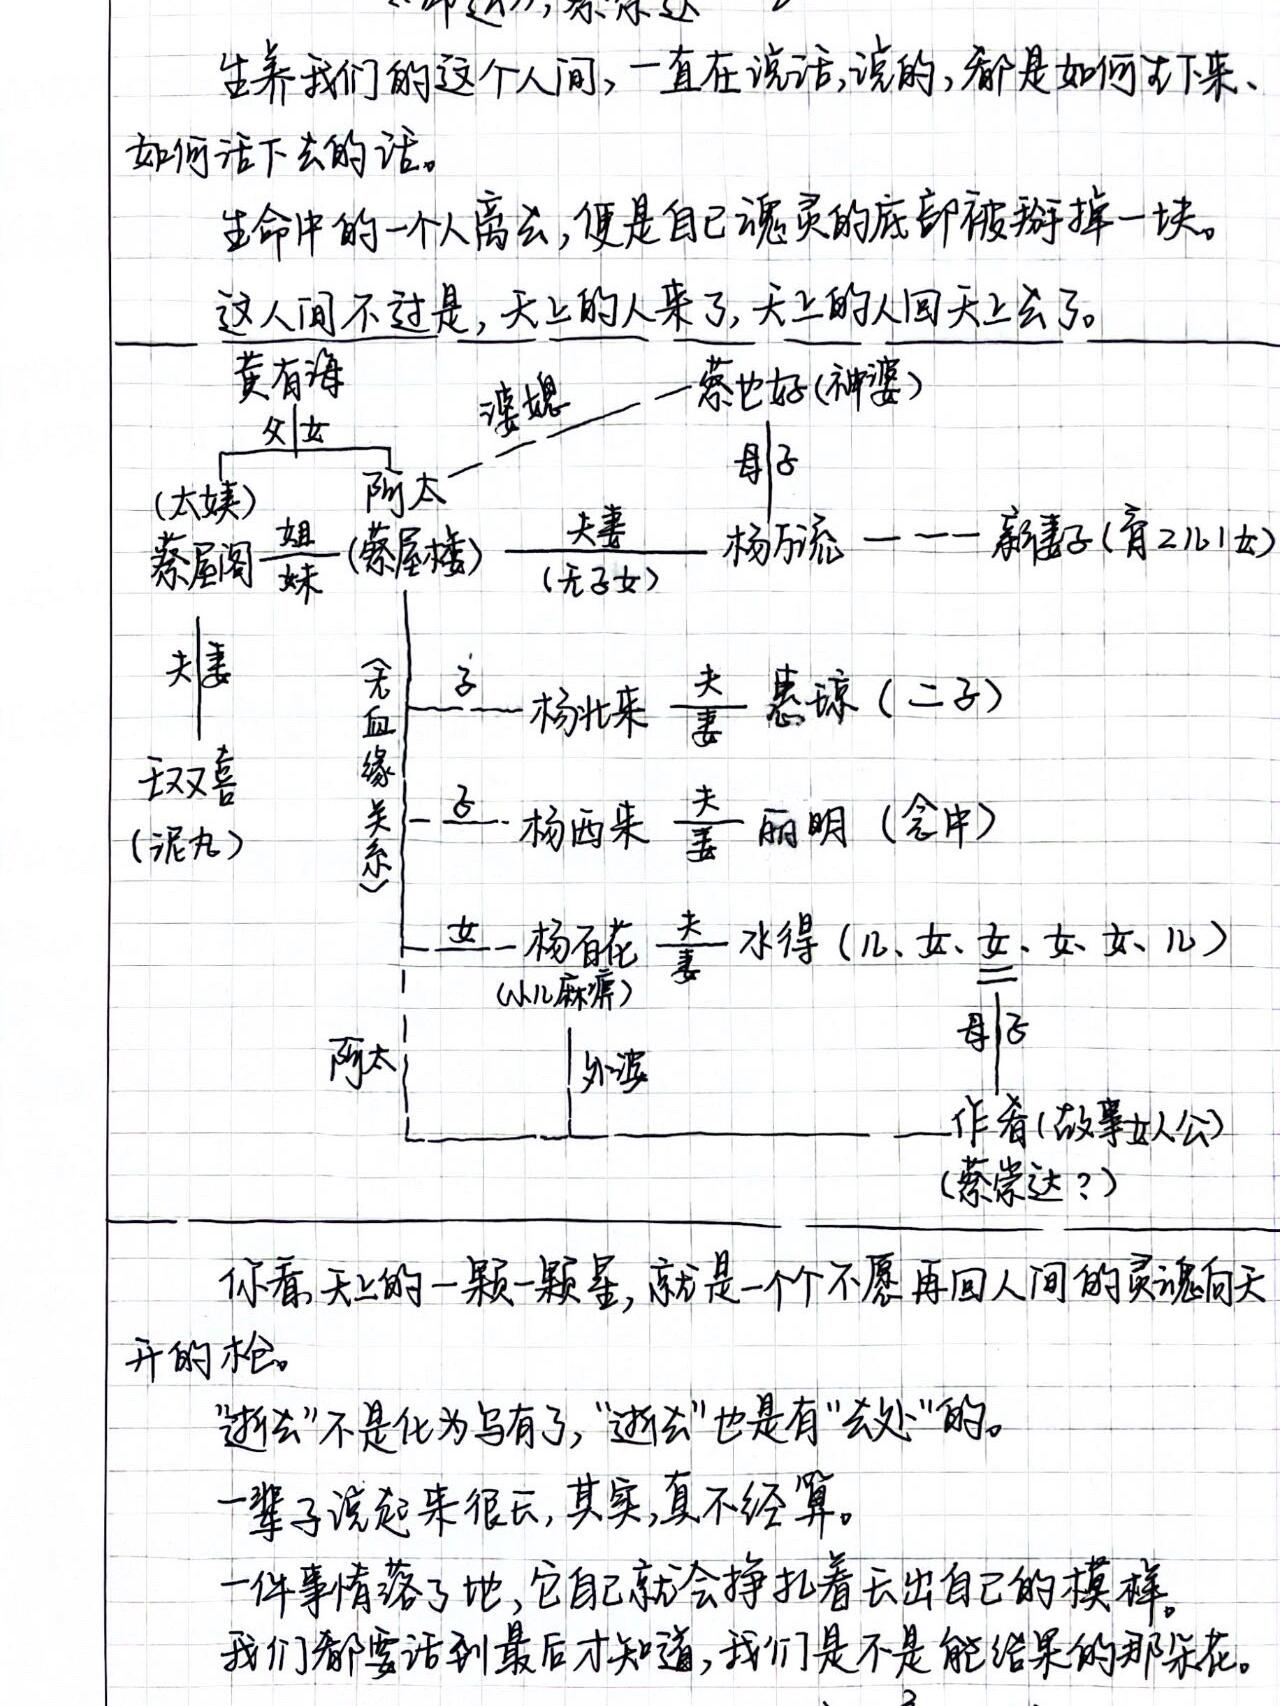 《命运》,蔡崇达
生养我们的这个人间,一直在说话,说的,都是如何生下来、
如何活下去的话。
生命中的一个人离去,便是自己魂灵的底部被掰掉一块。
这人间不过是,天上的人来了,天上的人回天上去了。
黄有海
婆媳
蔡也好(神婆)
父女
母子
(太姨)
阿太
蔡屋阁
姐妹
(蔡屋楼)
夫妻
(无子女)
杨万流
新妻子(育2儿1女)
夫妻
(无血缘关系)
子
杨北来
夫妻
惠琼(二子)
王双喜
(泥丸)
子
杨西来
夫妻
丽明(念中)
女
杨百花
夫妻
水得(儿、女、女、女、女、儿)
(小儿麻痹)
母子
阿太
外婆
作者(故事主人公)
(蔡崇达?)
你看,天上的一颗一颗星,就是一个个不愿再回人间的灵魂向天
开的枪。
"逝去"不是化为乌有了,"逝去"也是有"去处"的。
一辈子说起来很长,其实,真不经算。
一件事情落了地,它自己就会挣扎着长出自己的模样。
我们都要活到最后才知道,我们是不是能结果的那朵花。